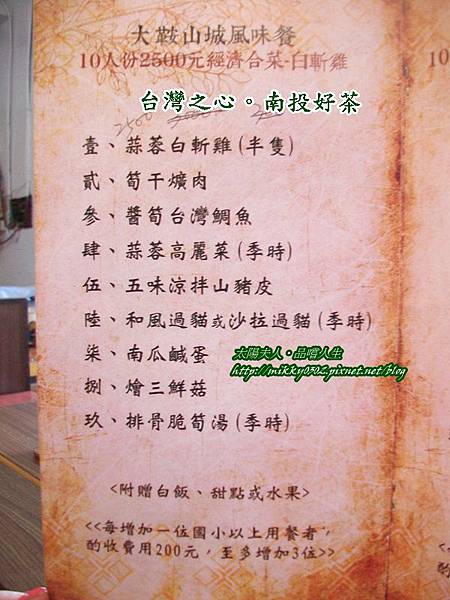 大鞍山城風味餐
10人份2500元經濟合菜-白斬雞
台灣之心。南投好茶
2500
壹、蒜蓉白斬雞(半隻)
貳、筍干爌肉
參、醬筍台灣鯛魚
肆、蒜蓉高麗菜(季時)
伍、五味涼拌山豬皮
陸、和風過貓或沙拉過貓(季時)
柒、南瓜鹹蛋
太陽夫人。品嚐人生
http://mikky0502.pixnet.net/blog
捌、燴三鮮菇
玖、排骨脆筍湯(季時)
<附贈白飯、甜點或水果>
<<每增加一位國小以上用餐者,
酌收費用200元,至多增加3位>>
10